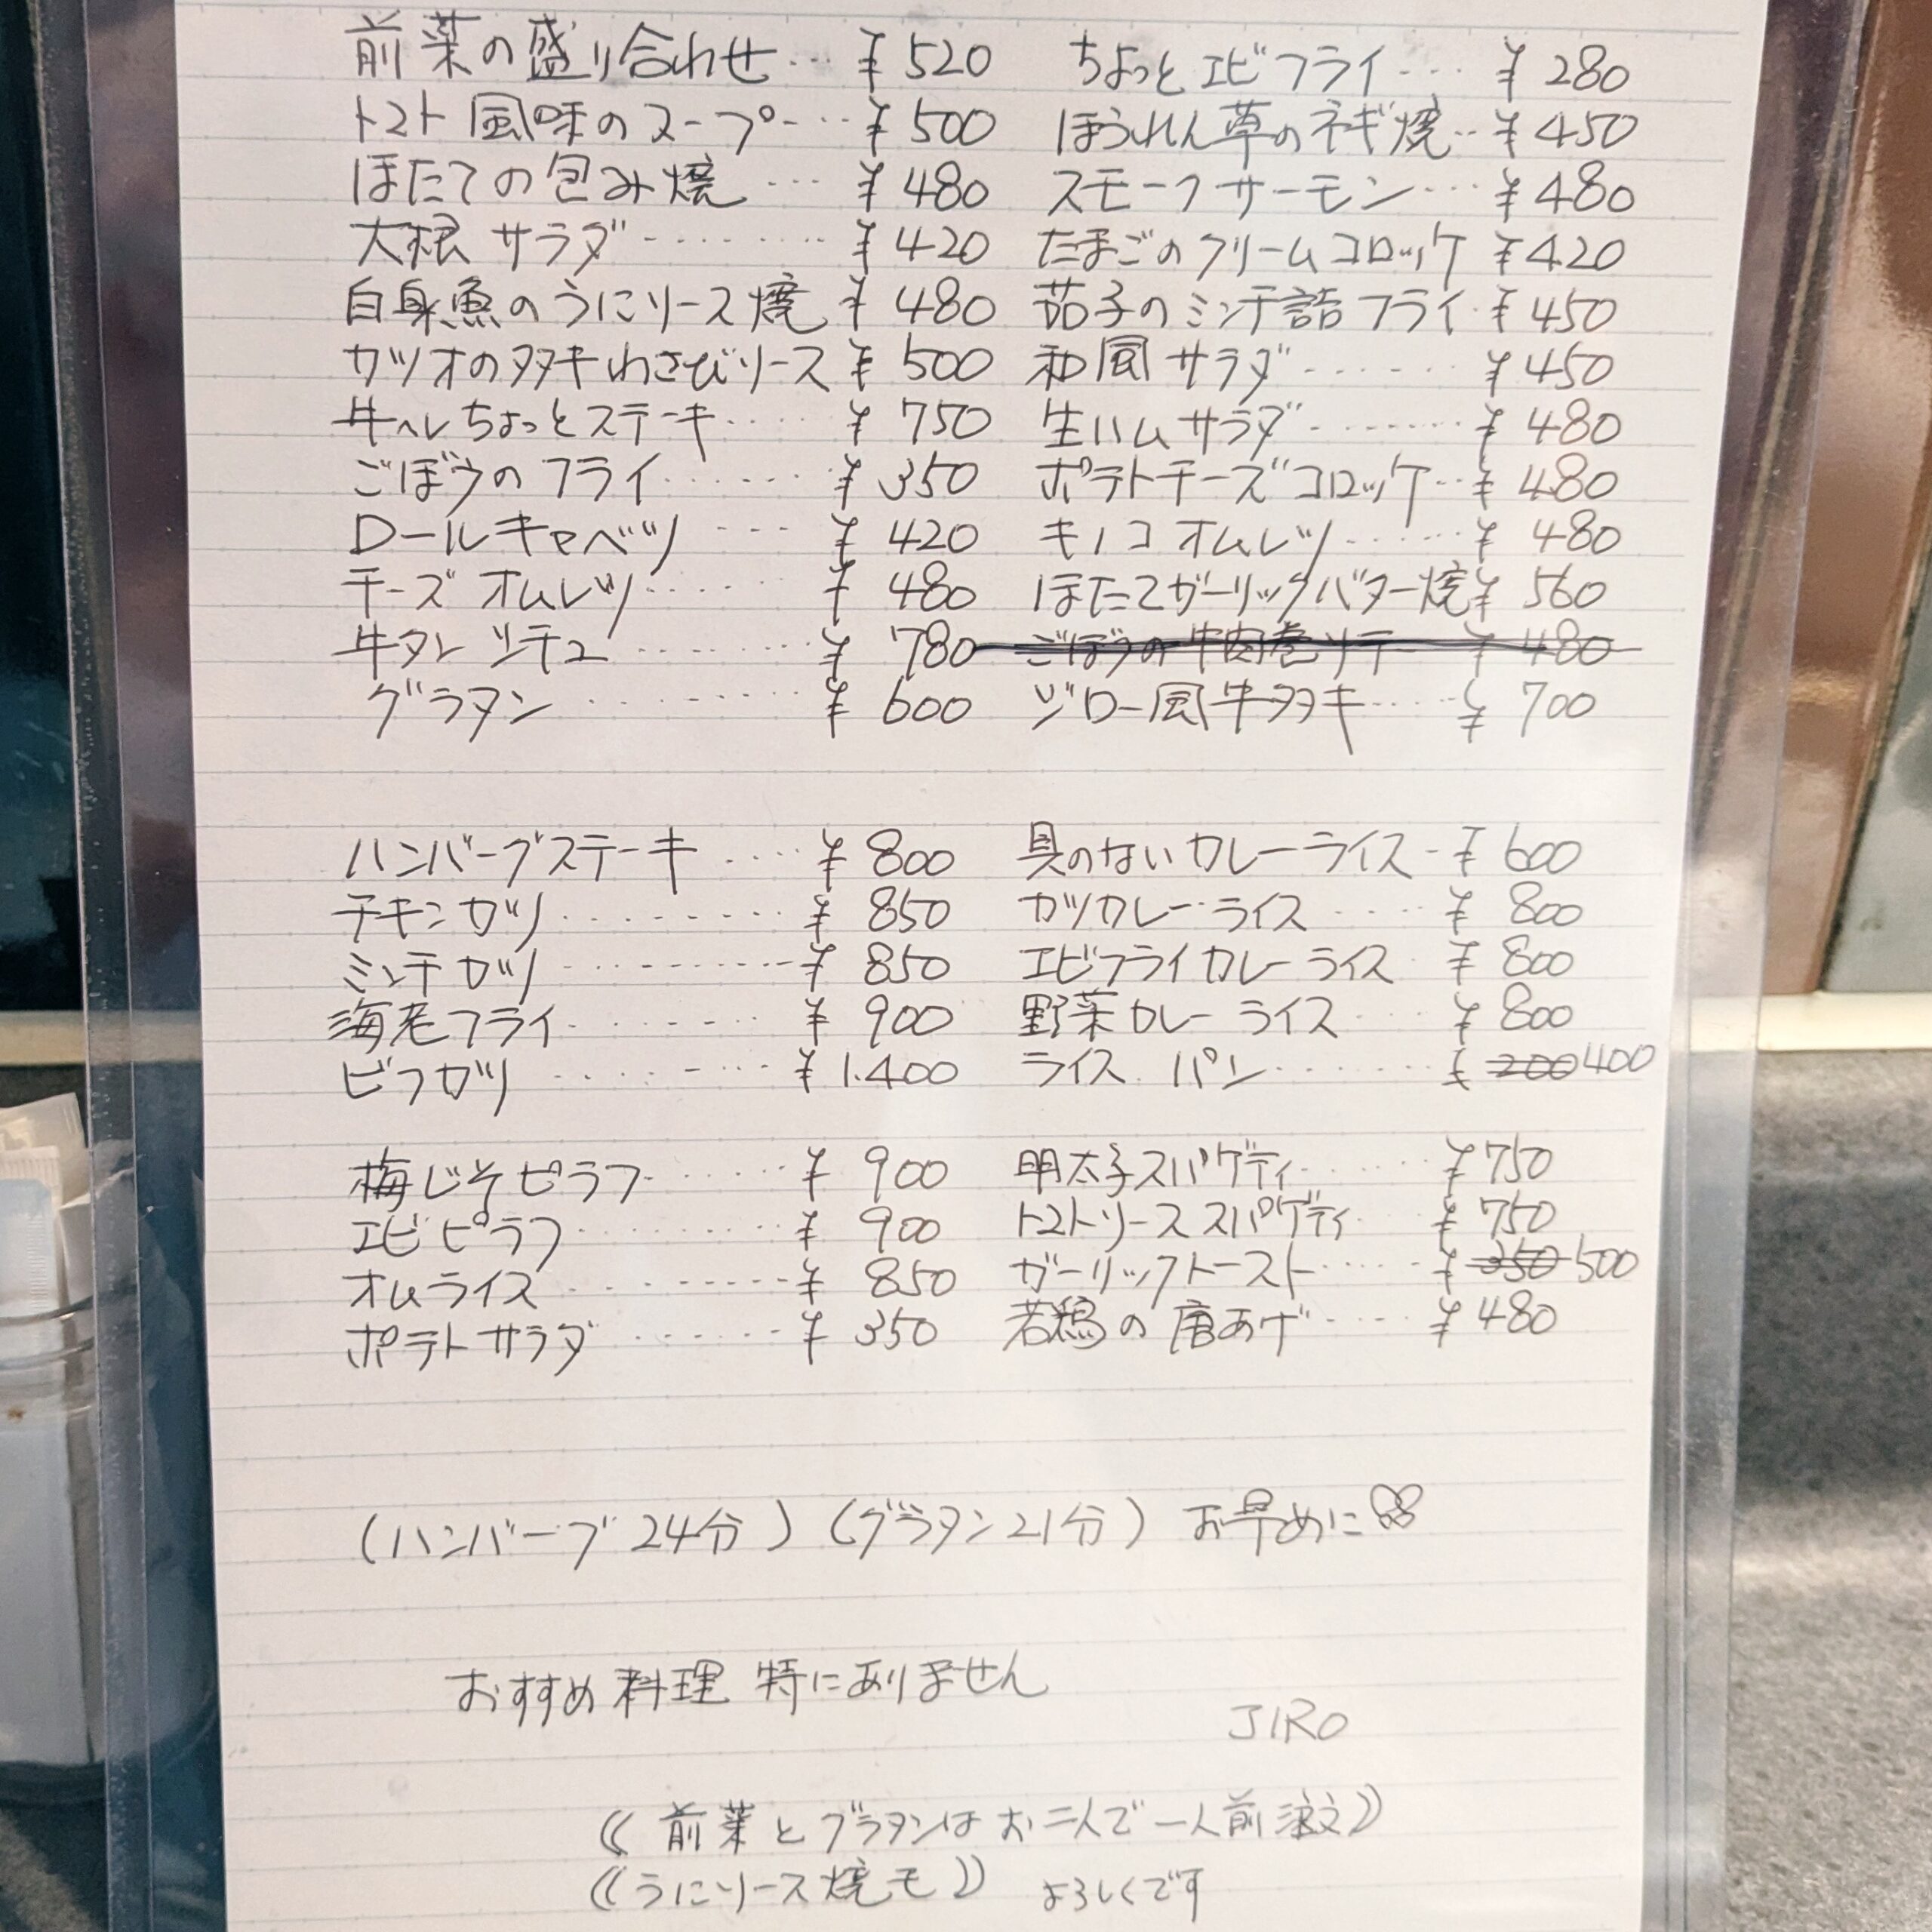 前菜の盛り合わせ… ¥520 ちょっとエビフライ… ¥280
トマト風味のスープ… ¥500 ほうれん草のネギ焼… ¥450
ほたての包み焼… ¥480 スモークサーモン… ¥480
大根サラダ… ¥420 たまごのクリームコロッケ ¥420
白身魚のうにソース焼 ¥480 茄子のミンチ詰フライ ¥450
カツオのタタキわさびソース ¥500 和風サラダ… ¥450
牛ヘレちょっとステーキ… ¥750 生ハムサラダ… ¥480
ごぼうのフライ… ¥350 ポテトチーズコロッケ… ¥480
ロールキャベツ… ¥420 キノコオムレツ… ¥480
チーズオムレツ… ¥480 ほたてガーリックバター焼 ¥560
牛タンシチュー ¥780 ごぼうの牛肉巻ソテー ¥480
グラタン… ¥600 ジロー風牛タタキ… ¥700
ハンバーグステーキ… ¥800 具のないカレーライス… ¥600
チキンカツ… ¥850 カツカレーライス… ¥800
ミンチカツ… ¥850 エビフライカレーライス ¥800
海老フライ… ¥900 野菜カレーライス… ¥800
ビフカツ… ¥1.400 ライス パン… ¥200 400
梅じそピラフ… ¥900 明太子スパゲティ… ¥750
エビピラフ… ¥900 トマトソーススパゲティ… ¥750
オムライス… ¥850 ガーリックトースト… ¥350 500
ポテトサラダ… ¥350 若鶏の唐あげ… ¥480
(ハンバーグ24分) (グラタン21分) お早めに
おすすめ料理 特にありません
JIRO
《前菜とグラタンはお二人で一人前注文》
《うにソース焼モ》 よろしくです